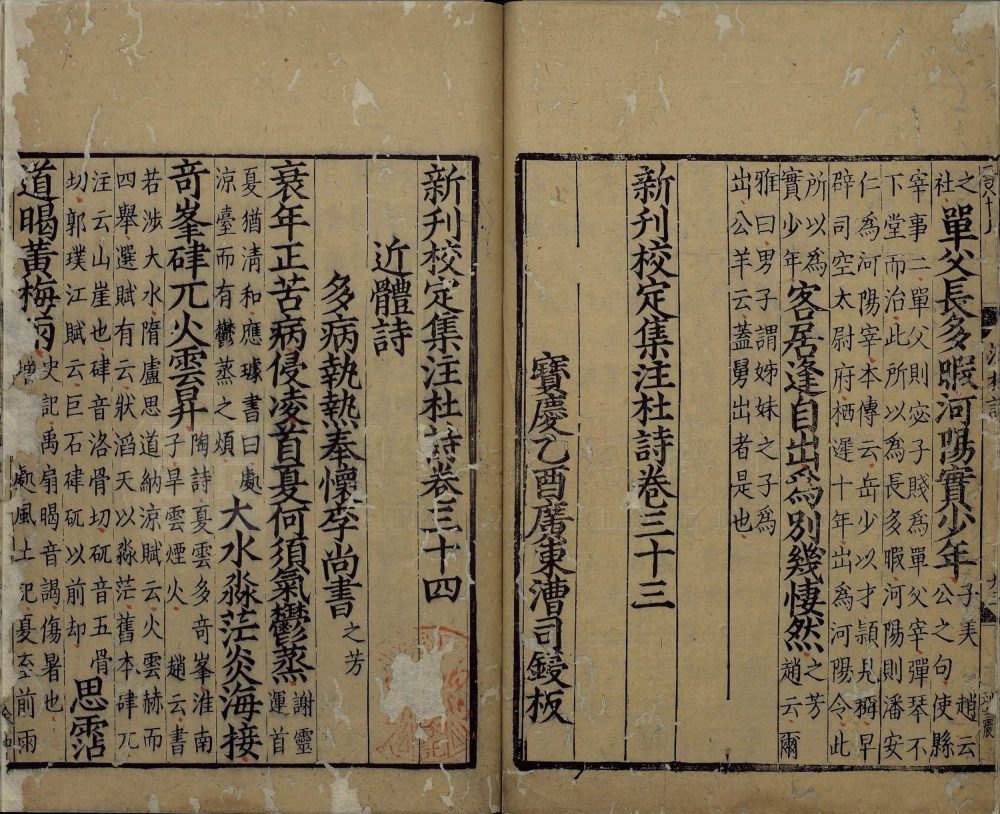 之社單父長多暇河陽實少年子美公之句趙云使縣
宰事二單父則宓子賤爲單父宰彈琴不
下堂而治此所以爲長多暇河陽則潘安
仁爲河陽宰本傳云岳少以才頴見稱早
辟司空太尉府栖遲十年出爲河陽令此
所以爲實少年客居逢自出爲別幾悽然之芳趙云爾
雅曰男子謂姊妹之子爲
出公羊云蓋舅出者是也
新刊校定集注杜詩卷三十三
寶慶乙酉廣東漕司鋟板
新刊校定集注杜詩卷三十四
近體詩
多病執熱奉懷李尚書之芳
衰年正苦病侵凌首夏何須氣鬱蒸謝靈運首
夏猶清和應璩書曰處涼臺而有鬱蒸之煩大水淼茫炎海接
奇峯硉兀火雲昇陶詩夏雲多奇峯淮南子旱雲煙火趙云書
若涉大水隋盧思道納涼賦云火雲赫而
四舉選賦有云狀滔天以淼茫舊本硉兀
注云山崖也硉音洛骨切矹音五骨
切郭璞江賦云巨石硉矹以前却思霑
道暍黃梅雨史記禹扇暍音謁傷暑也風土記夏至前雨